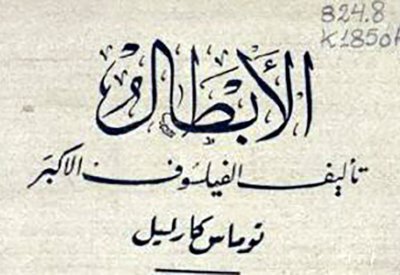 824.8
K1850A
الأبطال
تأليف الفيلسوف الأكبر
توماس كارليل